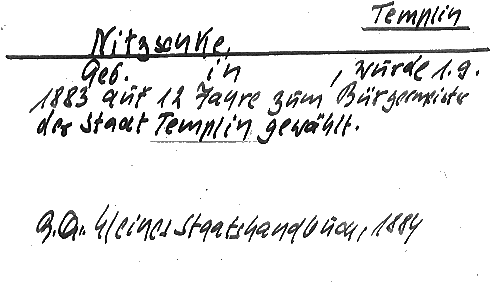 Templin
Nitzschke,
Geb. in , wurde i. J.
1883 auf 12 Jahre zum Bürgermeister
der Stadt Templin gewählt.
Kleines Staatshandbuch, 1884